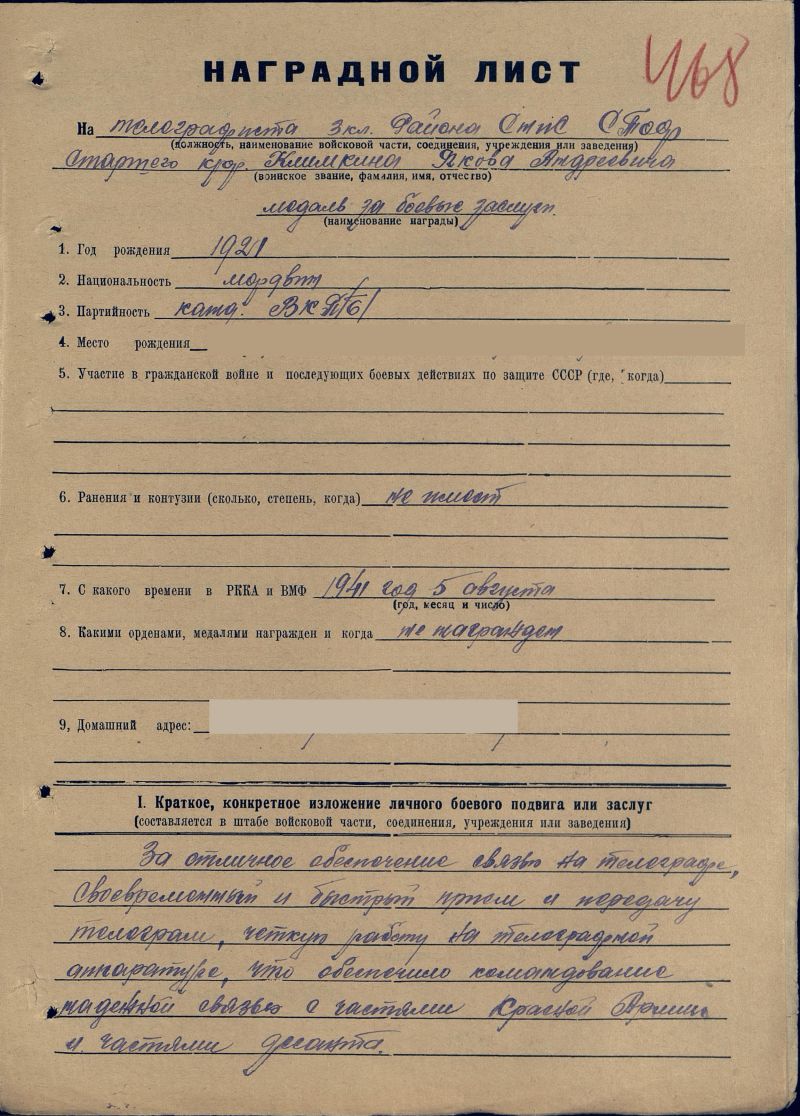 468
НАГРАДНОЙ ЛИСТ
На телеграфиста 3 кл. Района СНиС
(должность, наименование войсковой части, соединения, учреждения или заведения)
Старшего к/фл. Климкина Якова Андреевича
(воинское звание, фамилия, имя, отчество)
медаль за боевые заслуги.
(наименование награды)
1. Год рождения 1921
2. Национальность мордвин
3. Партийность канд. ВКП/б/
4. Место рождения
5. Участие в гражданской войне и последующих боевых действиях по защите СССР (где, когда)
6. Ранения и контузии (сколько, степень, когда) не имеет
7. С какого времени в РККА и ВМФ 1941 год 5 августа
(год, месяц и число)
8. Какими орденами, медалями награжден и когда не награжден
9, Домашний адрес:
I. Краткое, конкретное изложение личного боевого подвига или заслуг
(составляется в штабе войсковой части, соединения, учреждения или заведения)
За отличное обеспечение связью на телеграфе,
своевременный и быстрый прием и передачу
телеграм, четкую работу на телеграфной
аппаратуре, что обеспечило командование
надежной связью с частями Красной Армии
и частями десанта.